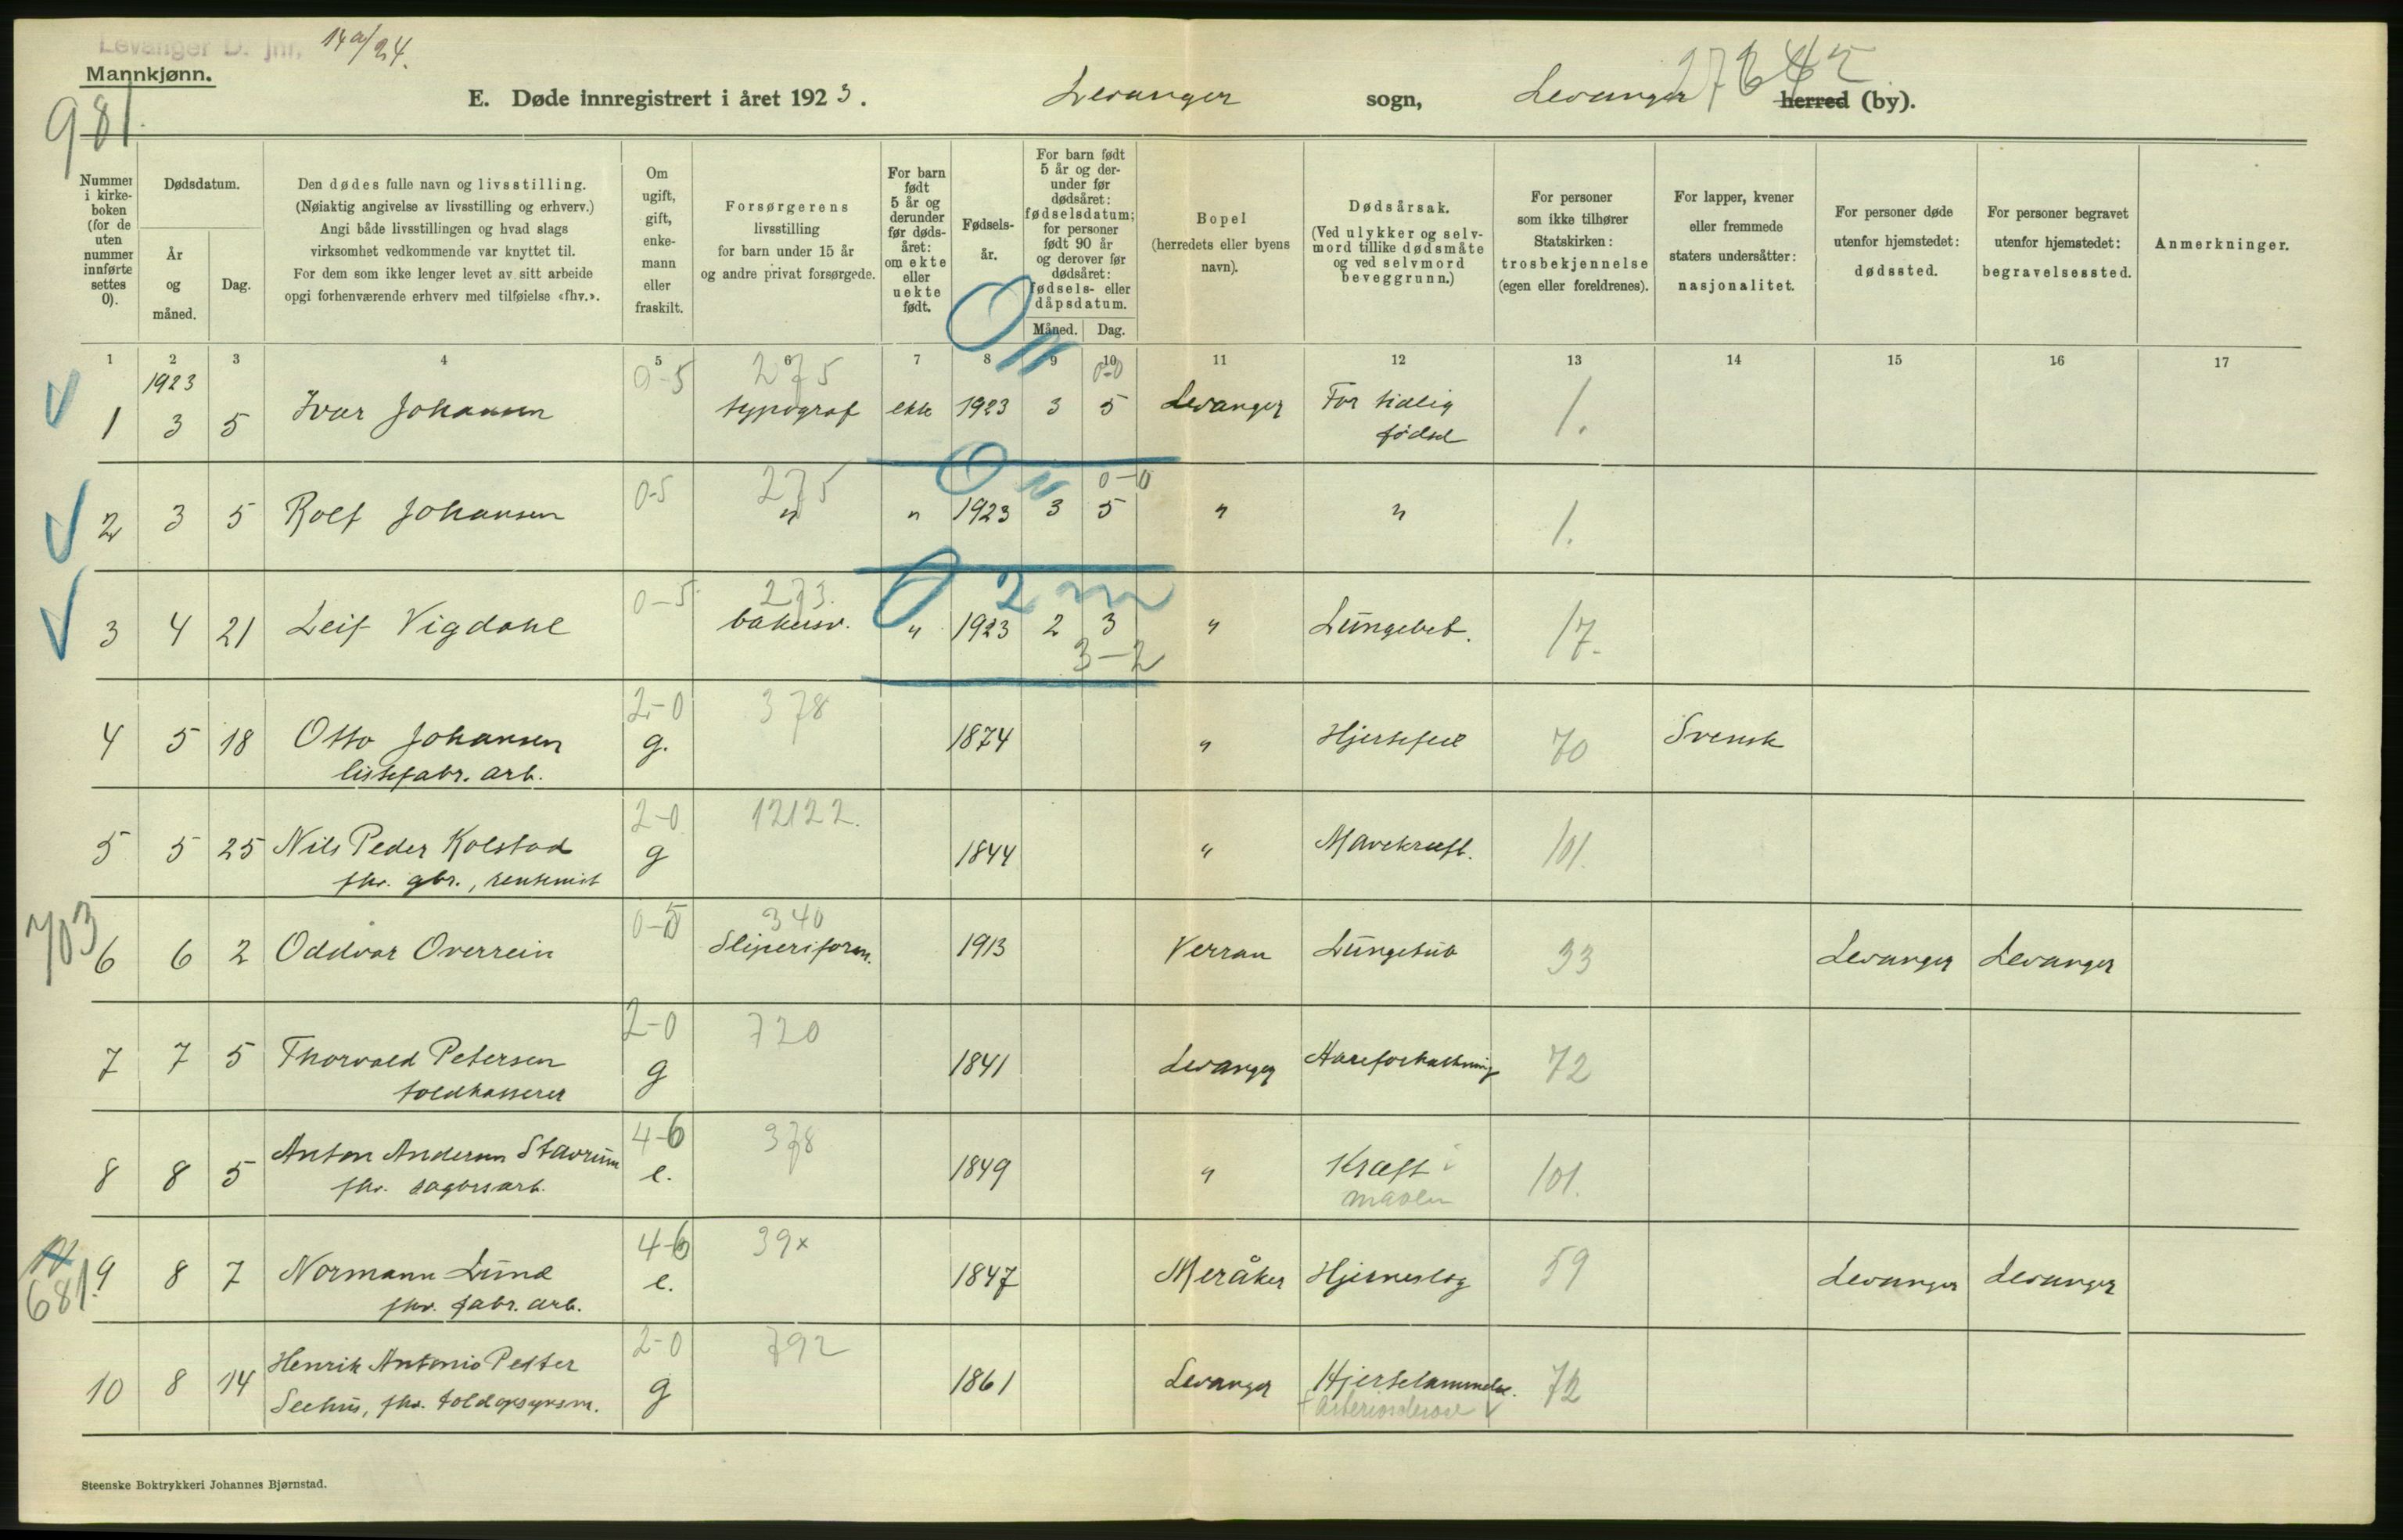 Levanger D. jnr. 14a/24.
Mannkjønn.
981.
E. Døde innregistrert i året 1923. Levanger sogn, Levanger herred (by).
Nummer i kirke- boken (for de uten nummer innførte settes 0).
Dødsdatum.
År og måned.
Dag.
Den dødes fulle navn og livsstilling.
(Nøiaktig angivelse av livsstilling og erhverv.)
Angi både livsstillingen og hvad slags
virksomhet vedkommende var knyttet til.
For dem som ikke lenger levet av sitt arbeide
opgi forhenværende erhverv med tilføielse «fhv.».
Om ugift, gift, enke- mann eller fraskilt.
Forsørgerens
livsstilling
for barn under 15 år
og andre privat forsørgede.
For barn født 5 år og derunder før døds- året: om ekte eller uekte født.
Fødsels- år.
For barn født 5 år og der- under før dødsåret: fødselsdatum; for personer født 90 år og derover før dødsåret: fødsels- eller dåpsdatum.
Måned. Dag.
Bopel
(herredets eller byens
navn).
Dødsårsak.
(Ved ulykker og selv-
mord tillike dødsmåte
og ved selvmord
beveggrunn.)
For personer
som ikke tilhører
Statskirken:
trosbekjennelse
(egen eller foreldrenes).
For lapper, kvener
eller fremmede
staters undersåtter:
nasjonalitet.
For personer døde
utenfor hjemstedet:
dødssted.
For personer begravet
utenfor hjemstedet:
begravelsessted.
Anmerkninger.
1 2 3 4 5 6 7 8 9 10 11 12 13 14 15 16 17
1923 0-5 275 0-0
1 3 5 Ivar Johansen typograf ekte 1923 3 5 Levanger For tidlig 1.
fødsel
0-5 275 0-0
2 3 5 Rolf Johansen " " 1923 3 5 " " 1.
0-5 273. 2 m
3 4 21 Leif Vigdahl bakersv. " 1923 2 3 " Lungebet. 17.
3-2
2-0 378
4 5 18 Otto Johansen g. 1874 " Hjertefeil 70 Svensk
listefabr. arb.
2-0 12122.
5 5 25 Nils Peder Kolstad g 1844 " Mavekræft. 101.
fhv. gbr., rentenist
703 0-5 340
6 6 2 Oddvar Overrein Sliperiform. 1913 Verran Lungetub 33 Levanger Levanger
2-0 720
7 7 5 Thorvald Petersen g 1841 Levanger Aareforkalkning 72
toldkasserer
4-6 378
8 8 5 Anton Andersen Stavrum e. 1849 " Kræft i 101.
fhv. sagbrsarb. maven
4-6 39x
681. 9 8 7 Normann Lund e. 1847 Meråker Hjerneslag 59 Levanger Levanger
fhv. fabr. arb.
2-0 792
10 8 14 Henrik Antonio Petter g 1861 Levanger Hjertelammelse. 72
Seehus, fhv. toldopsynsm.
Steenske Boktrykkeri Johannes Bjørnstad.